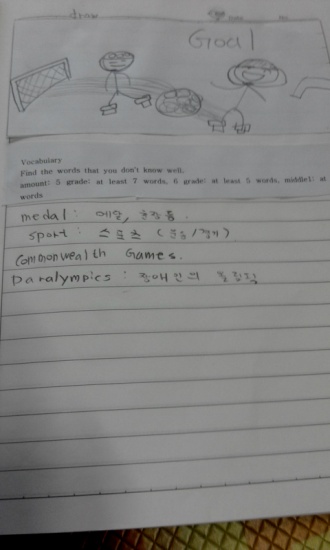 draw
Goal
Vocabulary
Find the words that you don't know well.
amount: 5 grade: at least 7 words, 6 grade: at least 5 words, middle1: at
words
medal: 메달, 훈장
sport: 스포츠 (운동/경기)
Commonwealth Games.
Paralympics : 장애인의 올림픽